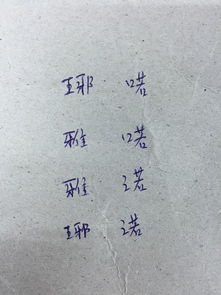 琊 喏
雅 喏
雅 诺
琊 诺